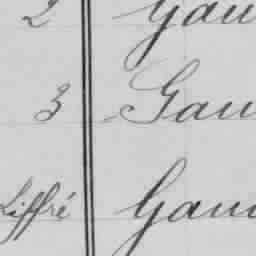 2 Gau
3 Gau
Liffré Gau